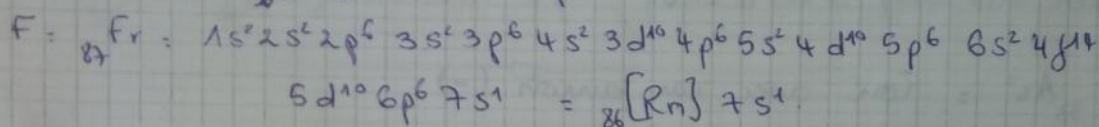 F = ₈₇Fr = 1s² 2s² 2p⁶ 3s² 3p⁶ 4s² 3d¹⁰ 4p⁶ 5s² 4d¹⁰ 5p⁶ 6s² 4f¹⁴
5d¹⁰ 6p⁶ 7s¹ = ₈₆[Rn] 7s¹